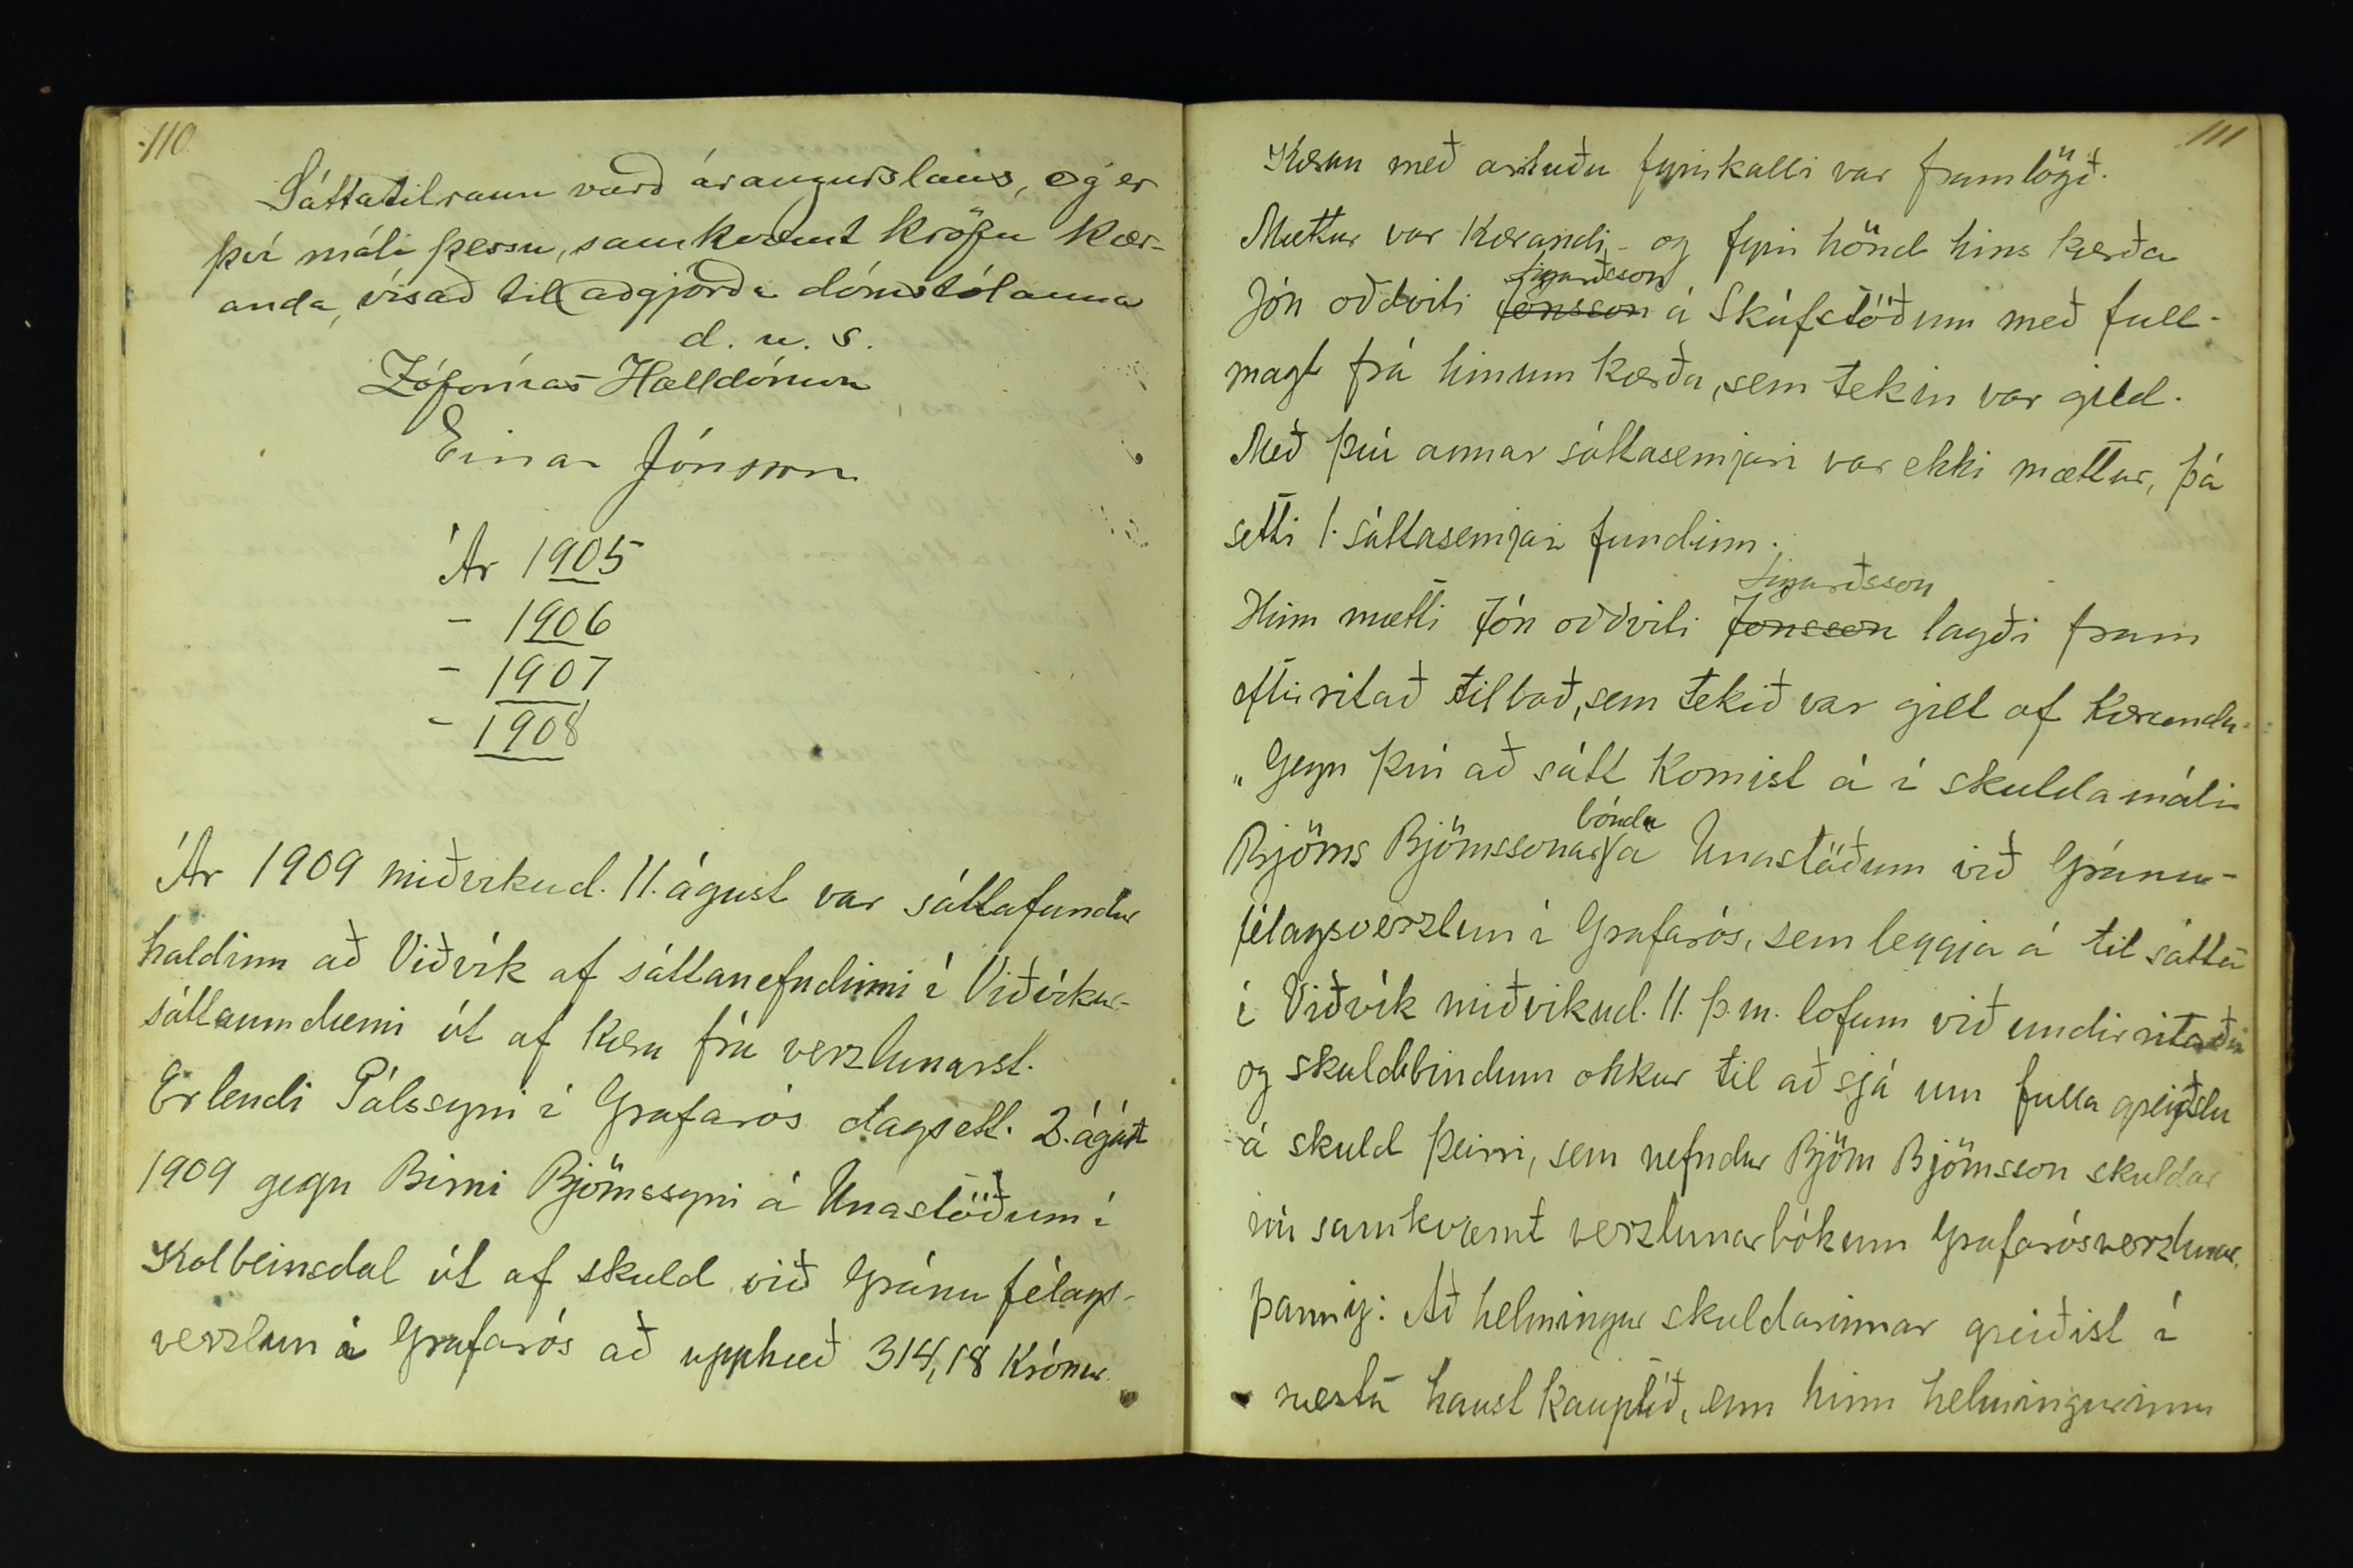 110.
Sáttatilraun varð árangurslaus, og er
því máli þessu, samkvæmt kröfu kær-
anda, vísað til aðgjörða dómstólanna
d. u. s.
Zófonías Halldórsson
Einar Jónsson
Ár 1905
- 1906
- 1907
- 1908
Ár 1909 miðvikud. 11. ágúst var sáttafundur
haldinn að Viðvík af sáttanefndinni í Viðvíkur-
sáttaumdæmi út af kæru frá verzlunarst.
Erlendi Pálssyni í Grafarós dagsett. 2. ágúst
1909 gegn Birni Björnssyni á Unastöðum í
Kolbeinsdal út af skuld við Gránufélags-
verzlun í Grafarós að upphæð 314,18 Krónur.
111
Kæran með fyrirkalli var framlögð.
Mættur var Kærandi - og fyrir hönd hins kærða
Sigurðsson
Jón oddviti Jónsson á Skúfstöðum með full-
magt frá hinum kærða, sem tekin var gild.
Með því annar sáttasemjari var ekki mættur, þá
setti 1. sáttasemjari fundinn.
Sigurðsson
Hinn mætti Jón oddviti Jónsson lagði fram
eftirritað tilboð, sem tekið var gilt af Kæranda.
„Gegn því að sátt komist á í skuldamáli
bónda
Björns Björnssonar á Unastöðum við Gránu-
félagsverzlun í Grafarós, sem leggja á til sátta
í Viðvík miðvikud. 11. þ.m. lofum við undirritaðir
og skuldbindum okkur til að sjá um fulla greiðslu
á skuld þeirri, sem nefndur Björn Björnsson skuldar
nú samkvæmt verzlunarbókum Grafarósverzlunar.
þannig: Að helmingur skuldarinnar greiðist í
næstu haust kauptíð, enn hinn helmingurinn